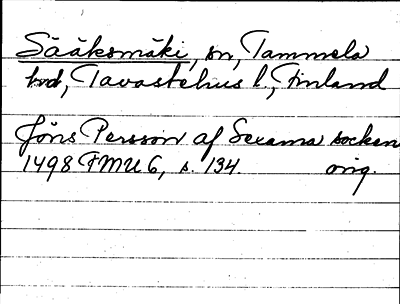 Sääksmäki, sn, Tammela
hd, Tavastehus l., Finland
Jöns Persson af Sexama socken
1498 FMU 6, s. 134. orig.